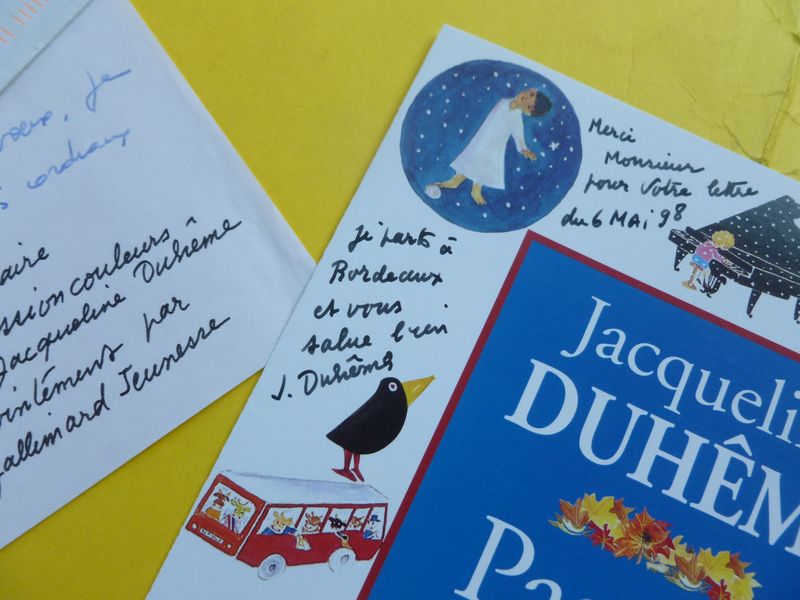 je
cordiaux
couleurs
Jacqueline Duhême
par
Gallimard Jeunesse
Merci
Monsieur
pour votre lettre
du 6 MAI 98
Je parts à
Bordeaux
et vous
salue bien
J. Duhême
Jacquelin
DUHÊM
Pa